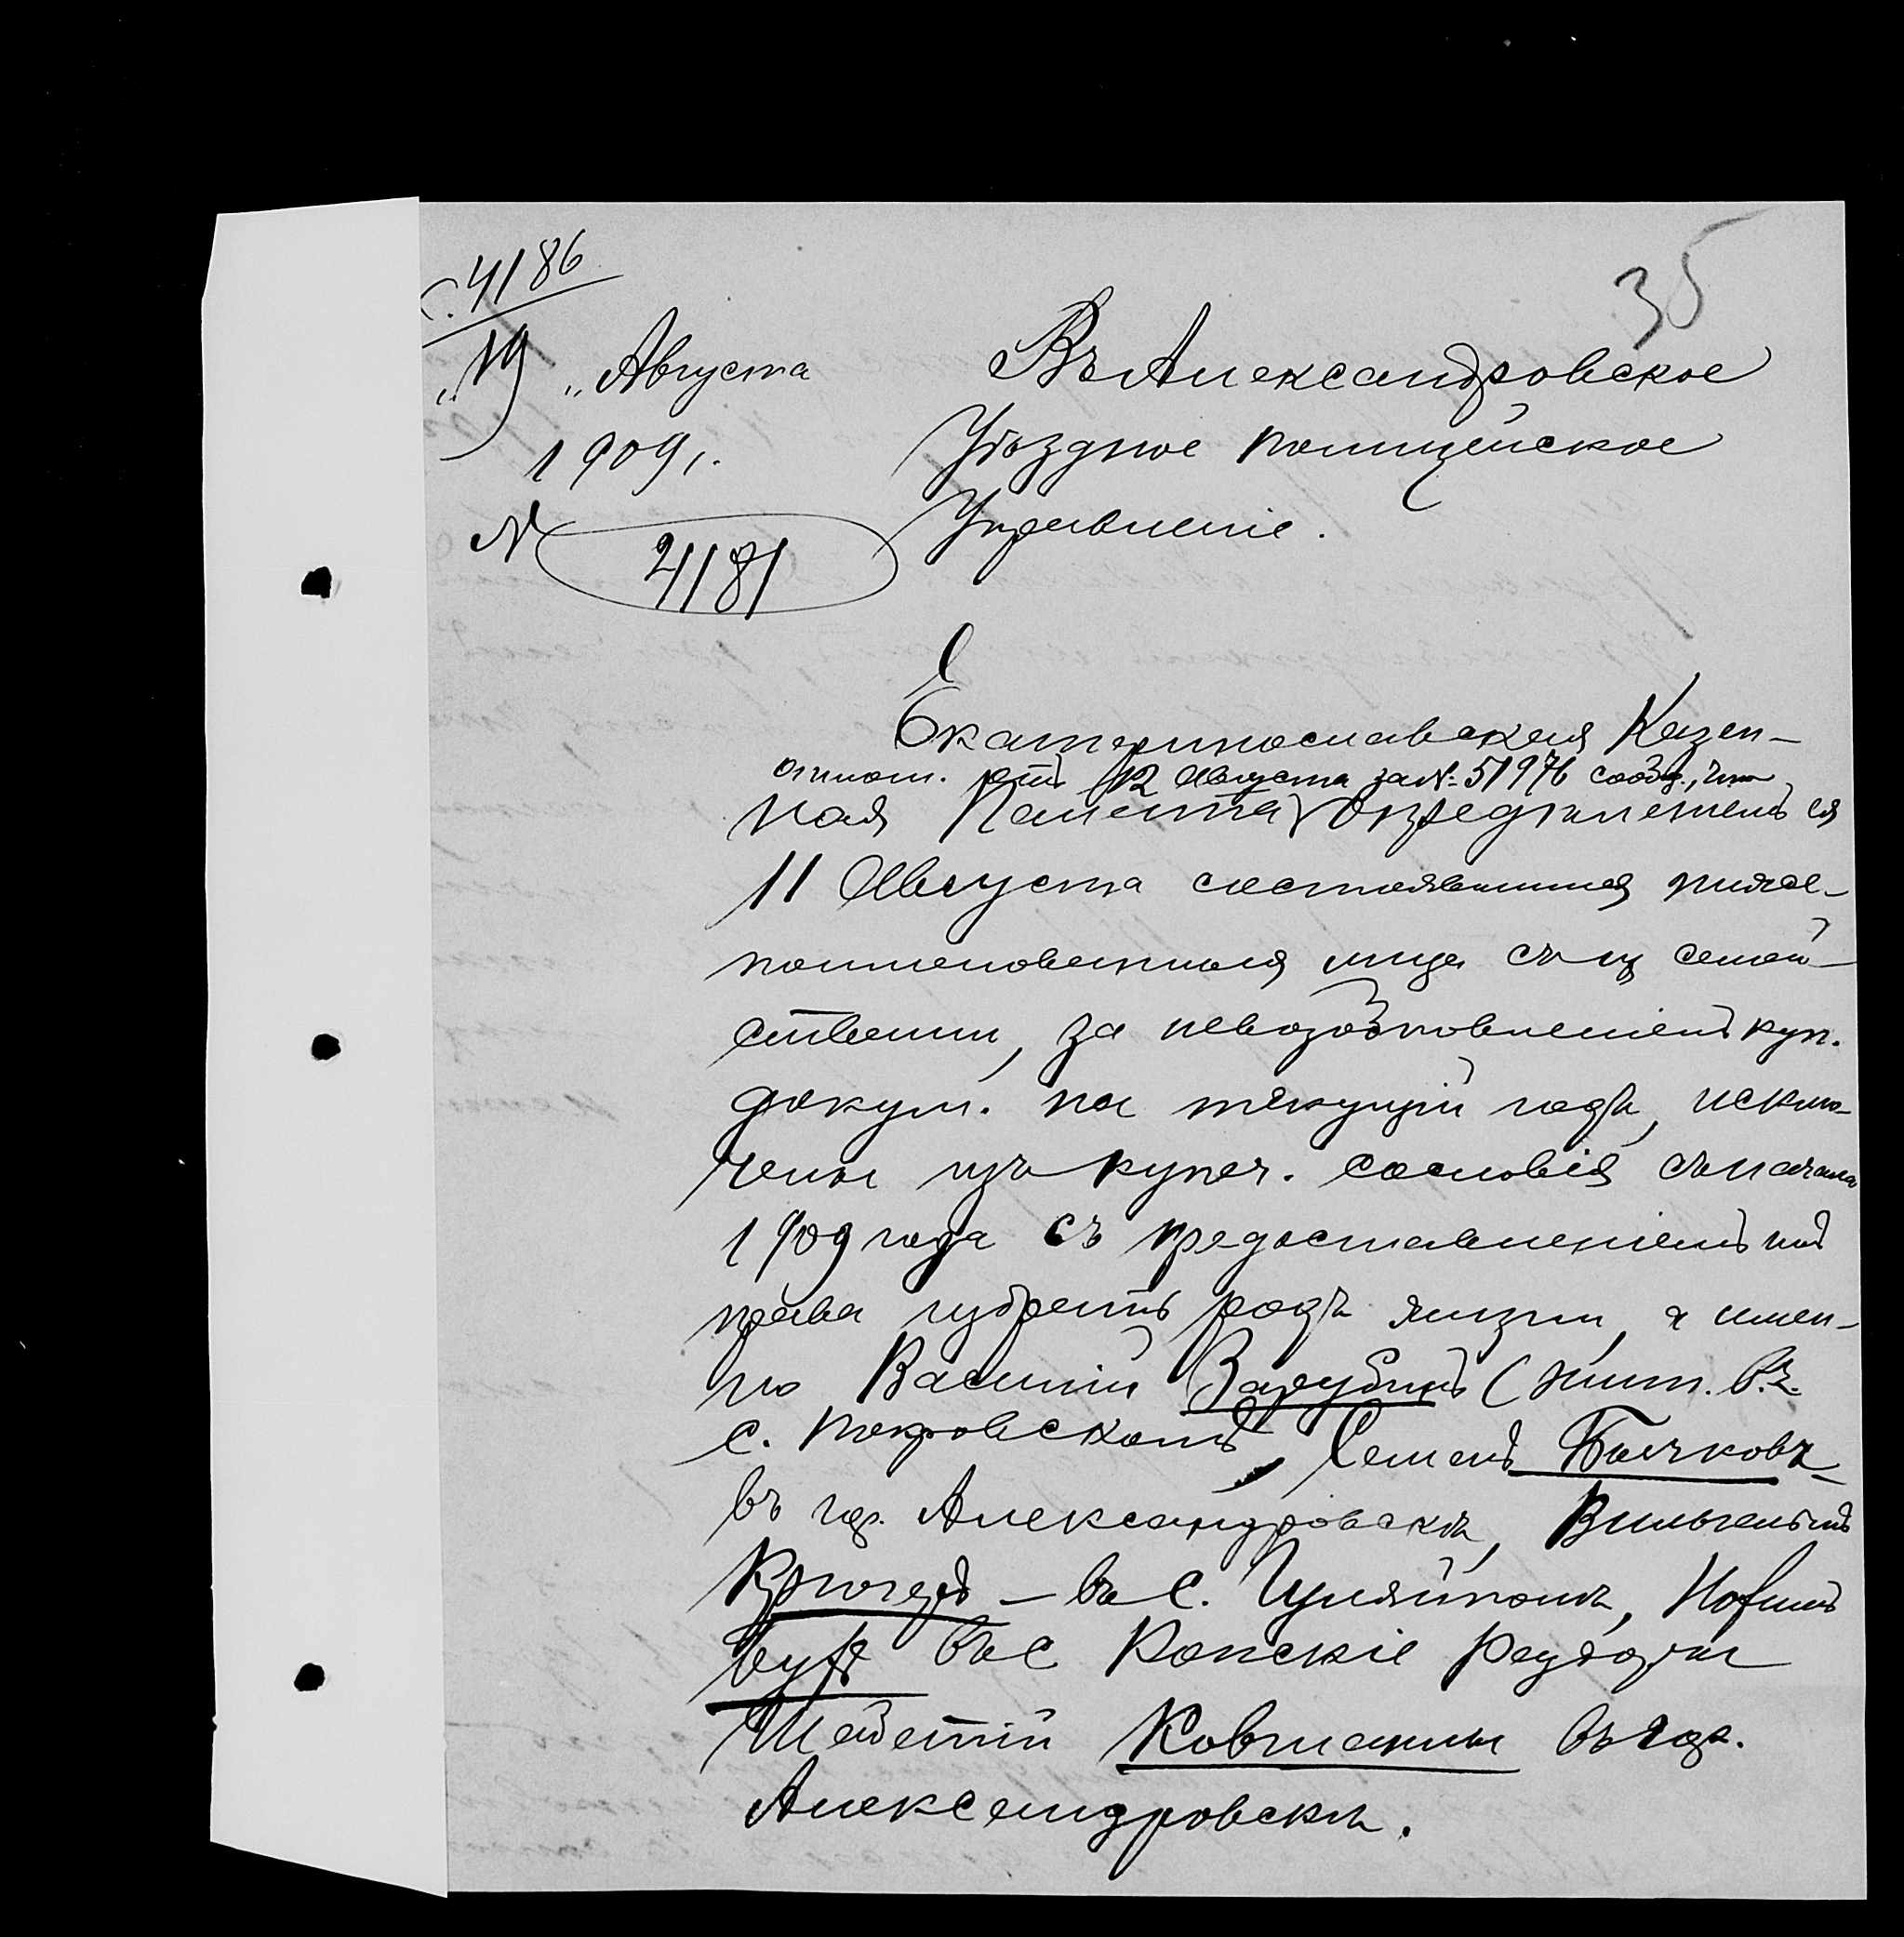 с. 4186
35
"19" Августа
1909 г.
№ 4181
Въ Александровское
Уѣздное Полицейское
Управленіе.
Екатеринославская Казен-
отнош. отъ 12 Августа за № 51976 сообщ., что
ная Палата опредѣленіемъ ея
11 Августа состоявшимся ниже-
поименованныя лица съ их семей-
ствами, за невозобновленіемъ куп.
докум. на текущій годъ, исклю-
чены изъ купеч. сословія съ начала
1909 года съ предоставленіемъ имъ
права избрать родъ жизни, а имен-
но Василій Зарубинъ (жит. въ
с. Покровскомъ, Семенъ Бычковъ
въ гор. Александровскѣ, Вильгельмъ
Крюгеръ – въ с. Гуляйполѣ,
въ с Конскіе Раздоры
Шабетій Ковшаны въ гор.
Александровскѣ.